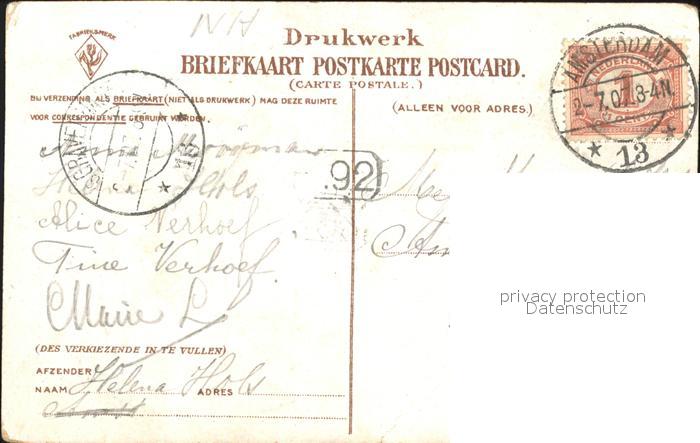 NH
FABRIEKSMERK
Drukwerk
BRIEFKAART POSTKARTE POSTCARD.
(CARTE POSTALE.)
BIJ VERZENDING ALS BRIEFKAART (NIET ALS DRUKWERK) MAG DEZE RUIMTE
VOOR CORRESPONDENTIE GEBRUIKT WORDEN.
(ALLEEN VOOR ADRES.)
AMSTERDAM
2-7.07.8-4N
13
NEDERLAND
1
.92
Helena Hols
Alice Verhoef
Tine Verhoef
Marie L
(DES VERKIEZENDE IN TE VULLEN)
AFZENDER
NAAM Helena Hols ADRES
privacy protection
Datenschutz